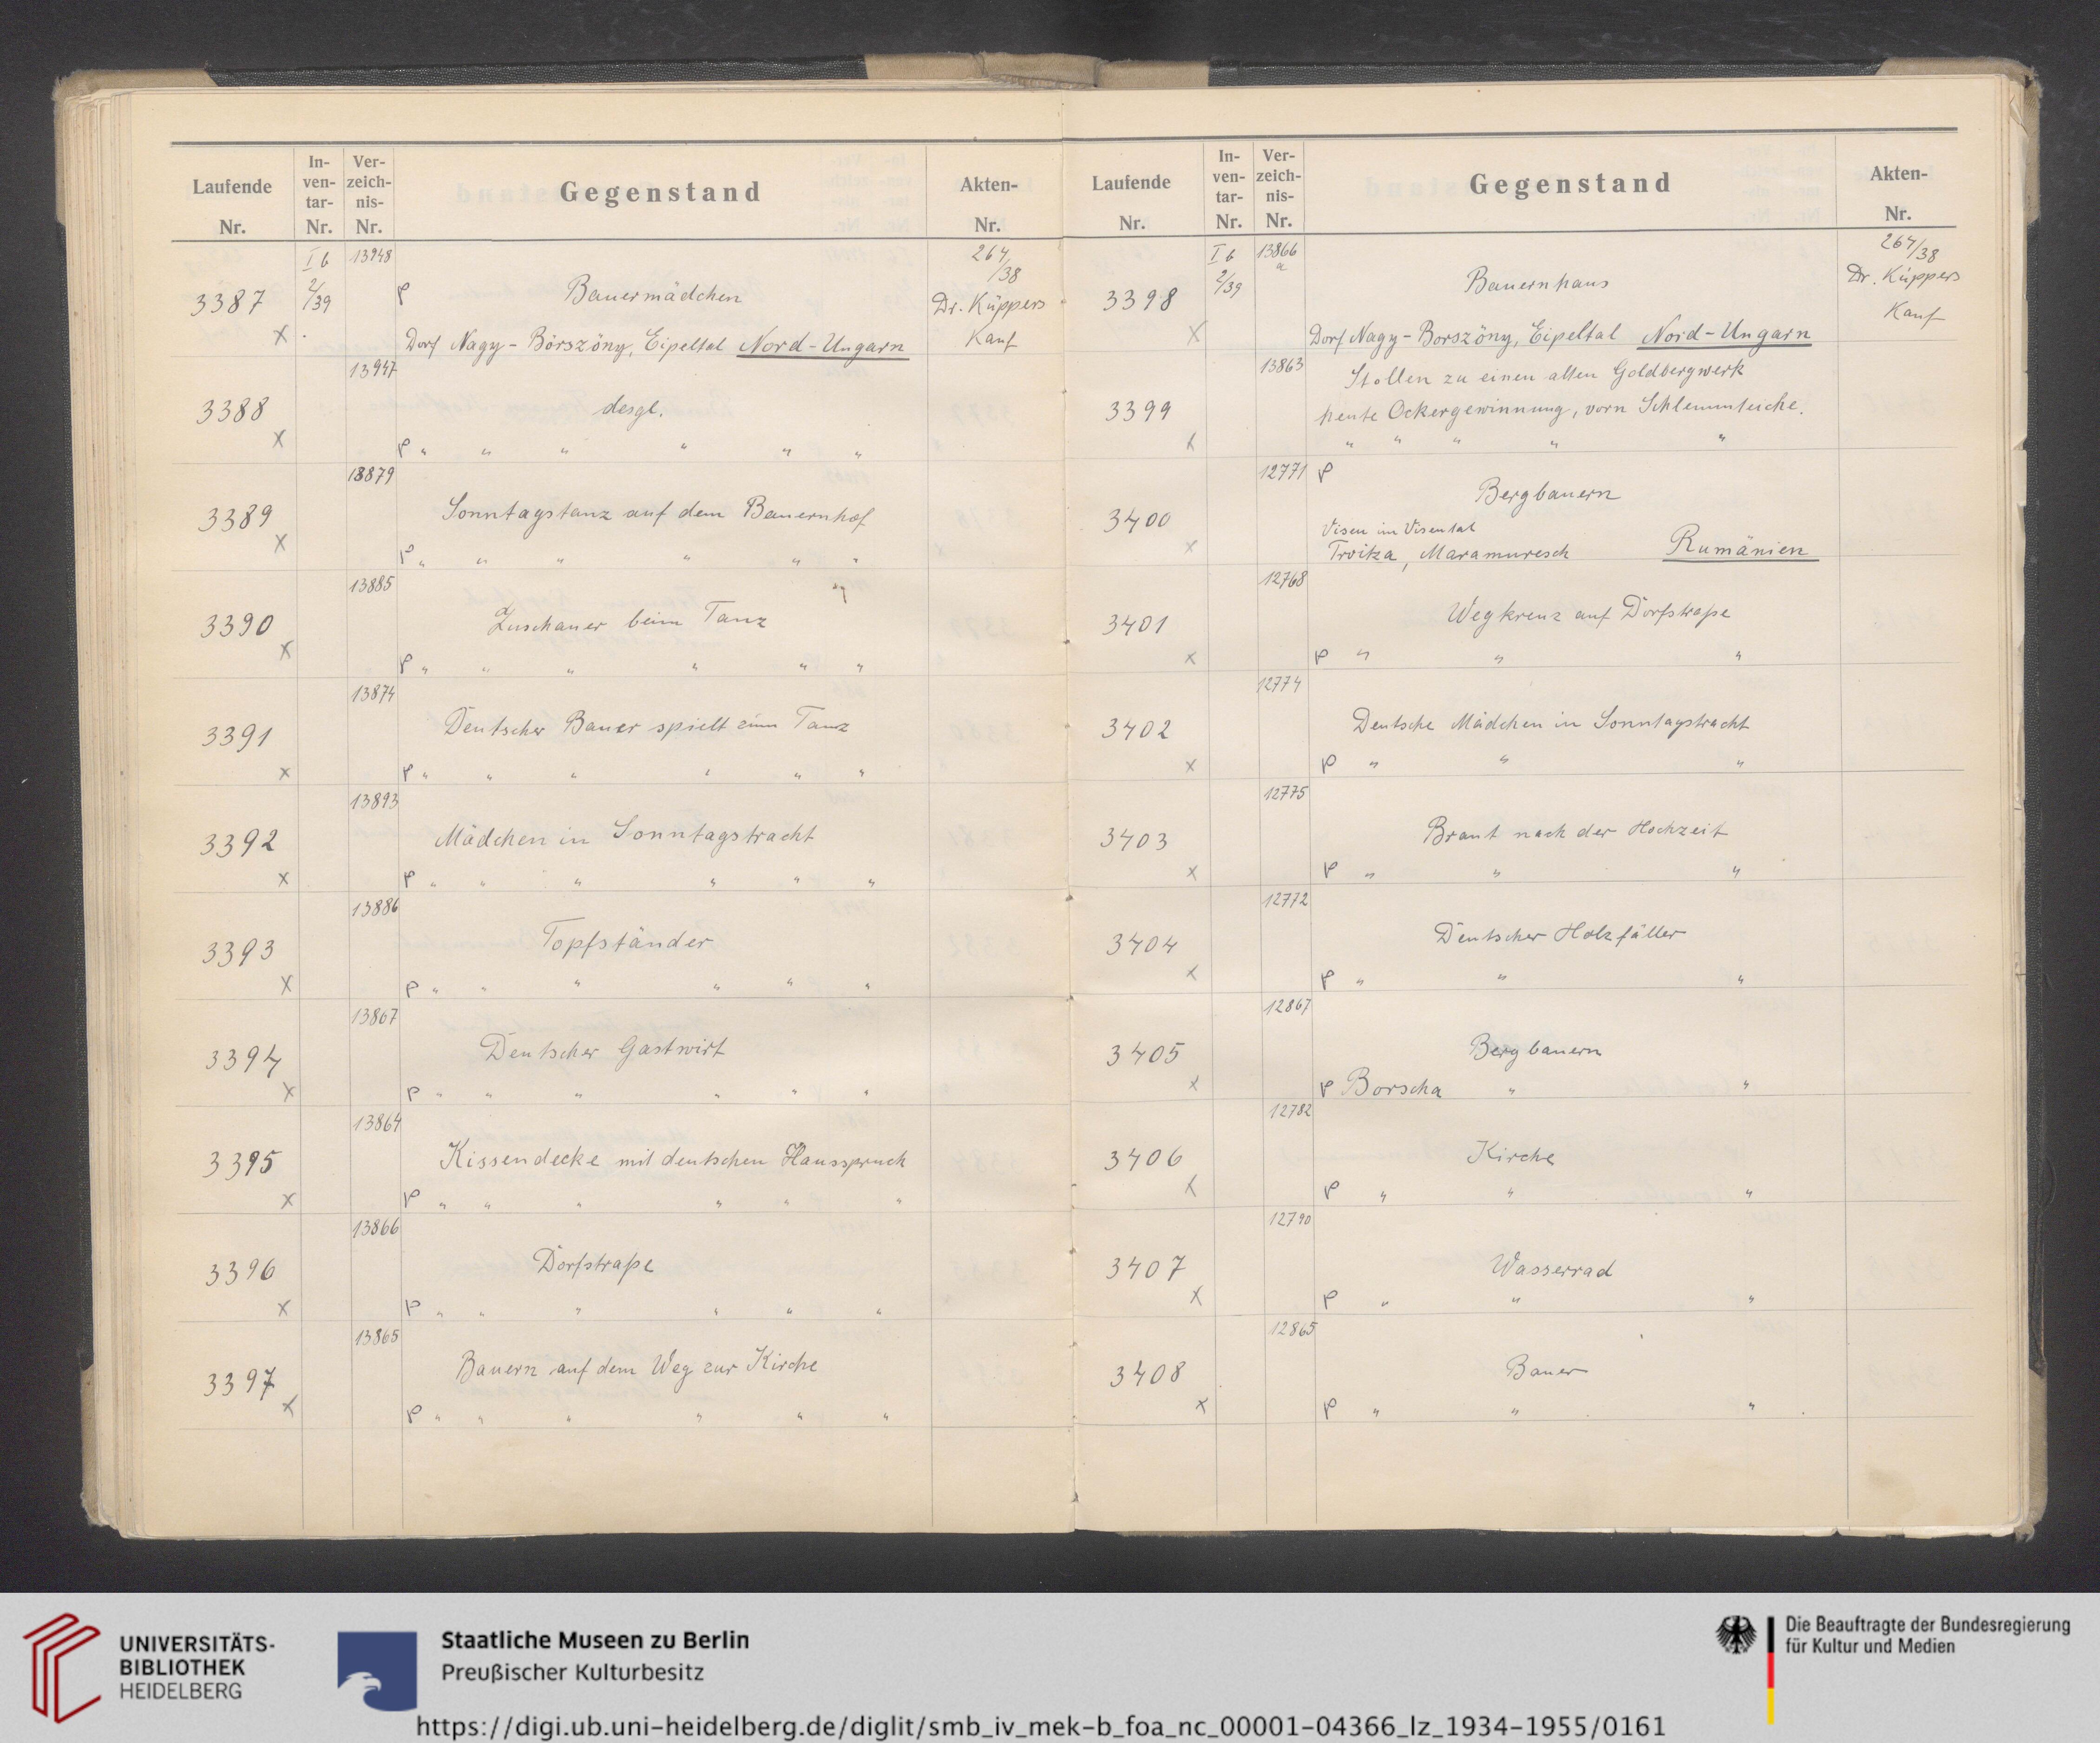 Laufende Nr. In-ven-tar-Nr. Ver-zeich-nis-Nr. Gegenstand Akten-Nr.
I b 13948 264/38
3387 2/39 P Bauermädchen Dr. Küppers
X Dorf Nagy-Börszöny, Eipeltal Nord-Ungarn Kauf
13947
3388 desgl.
X P " " " " " "
13879
3389 Sonntagstanz auf dem Bauernhof
X P " " " " " "
13885
3390 Zuschauer beim Tanz
X P " " " " " "
13874
3391 Deutscher Bauer spielt zum Tanz
X P " " " " " "
13893
3392 Mädchen in Sonntagstracht
X P " " " " " "
13886
3393 Topfständer
X P " " " " " "
13867
3394 Deutscher Gastwirt
X P " " " " " "
13864
3395 Kissendecke mit deutschen Hausspruch
X P " " " " " "
13866
3396 Dorfstraße
X P " " " " " "
13865
3397 Bauern auf dem Weg zur Kirche
X P " " " " " "
Laufende Nr. In-ven-tar-Nr. Ver-zeich-nis-Nr. Gegenstand Akten-Nr.
I b 13866 a 264/38
3398 2/39 Bauernhaus Dr. Küppers
X Dorf Nagy-Borszöny, Eipeltal Nord-Ungarn Kauf
13863 Stollen zu einen alten Goldbergwerk
3399 heute Ockergewinnung, vorn Schlemmteiche.
X " " " " "
12771 P
3400 Bergbauern
Visen im Visental
X Troitza, Maramuresch Rumänien
12768
3401 Wegkreuz auf Dorfstraße
X P " " "
12774
3402 Deutsche Mädchen in Sonntagstracht
X P " " "
12775
3403 Braut nach der Hochzeit
X P " " "
12772
3404 Deutscher Holzfäller
X P " " "
12867
3405 Bergbauern
X P Borscha " "
12782
3406 Kirche
X P " " "
12790
3407 Wasserrad
X P " " "
12865
3408 Bauer
X P " " "
UNIVERSITÄTS-
BIBLIOTHEK
HEIDELBERG
Staatliche Museen zu Berlin
Preußischer Kulturbesitz
Die Beauftragte der Bundesregierung
für Kultur und Medien
https://digi.ub.uni-heidelberg.de/diglit/smb_iv_mek-b_foa_nc_00001-04366_lz_1934-1955/0161